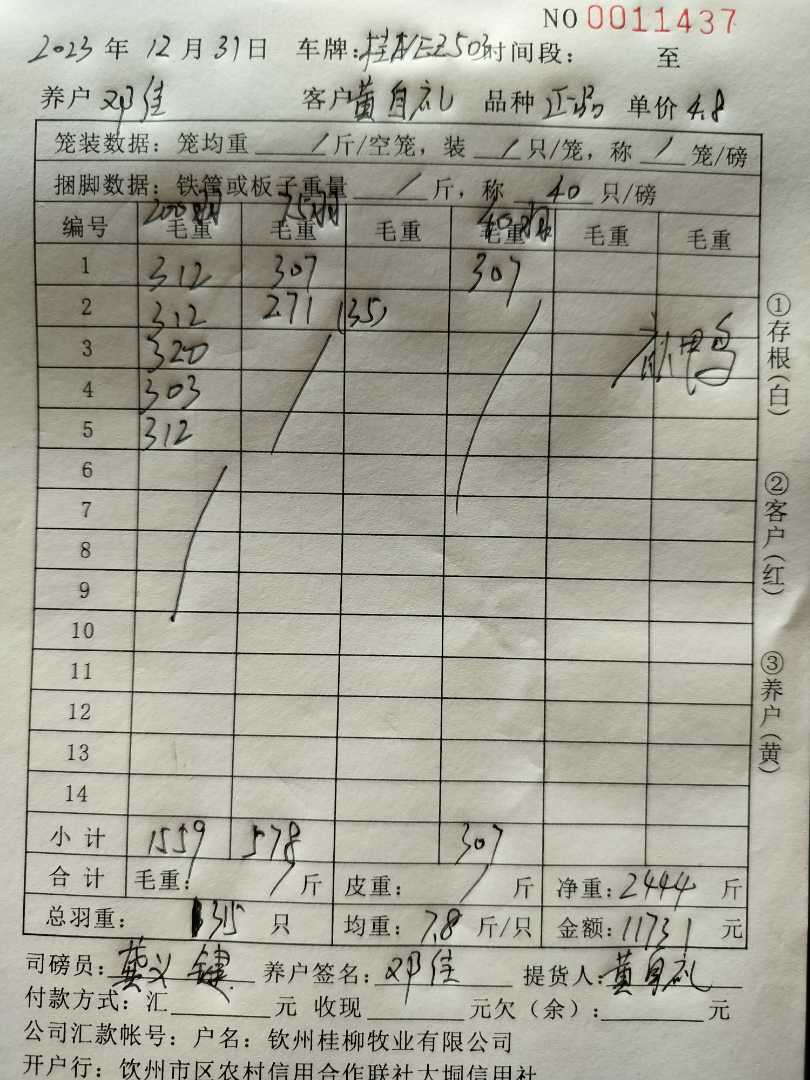 NO 0011437
2023 年 12 月 31 日 车牌: 时间段: 至
养户 邓佳 客户 黄自礼 品种 正品 单价 4.8
笼装数据: 笼均重 / 斤/空笼, 装 / 只/笼, 称 / 笼/磅
捆脚数据: 铁筐或板子重量 / 斤, 称 40 只/磅
200羽 75羽 40羽
编号 毛重 毛重 毛重 毛重 毛重 毛重
1 312 307 307
2 312 271 (35)
3 320
4 303
5 312
6
7
8
9
10
11
12
13
14
小计 1559 578 307
合计 毛重: / 斤 皮重: / 斤 净重: 2444 斤
总羽重: 315 只 均重: 7.8 斤/只 金额: 11731 元
司磅员: 龚义键 养户签名: 邓佳 提货人: 黄自礼
付款方式: 汇 元 收现 元欠(余): 元
公司汇款帐号: 户名: 钦州桂柳牧业有限公司
开户行: 钦州市区农村信用合作联社大垌信用社
①存根(白)
②客户(红)
③养户(黄)